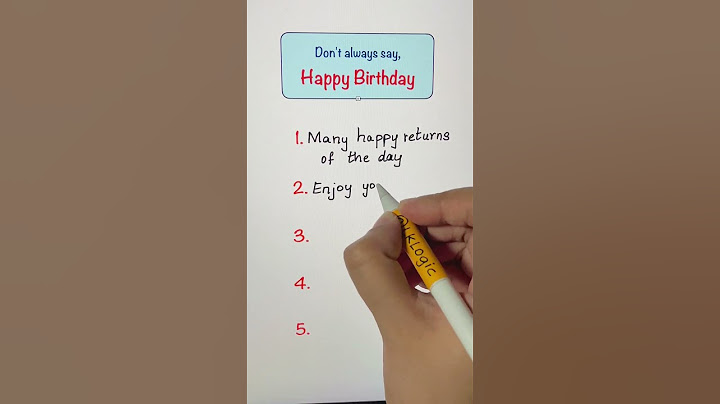 Don't always say,
Happy Birthday
1. Many happy returns
of the day
2. Enjoy yo
3.
4.
5.